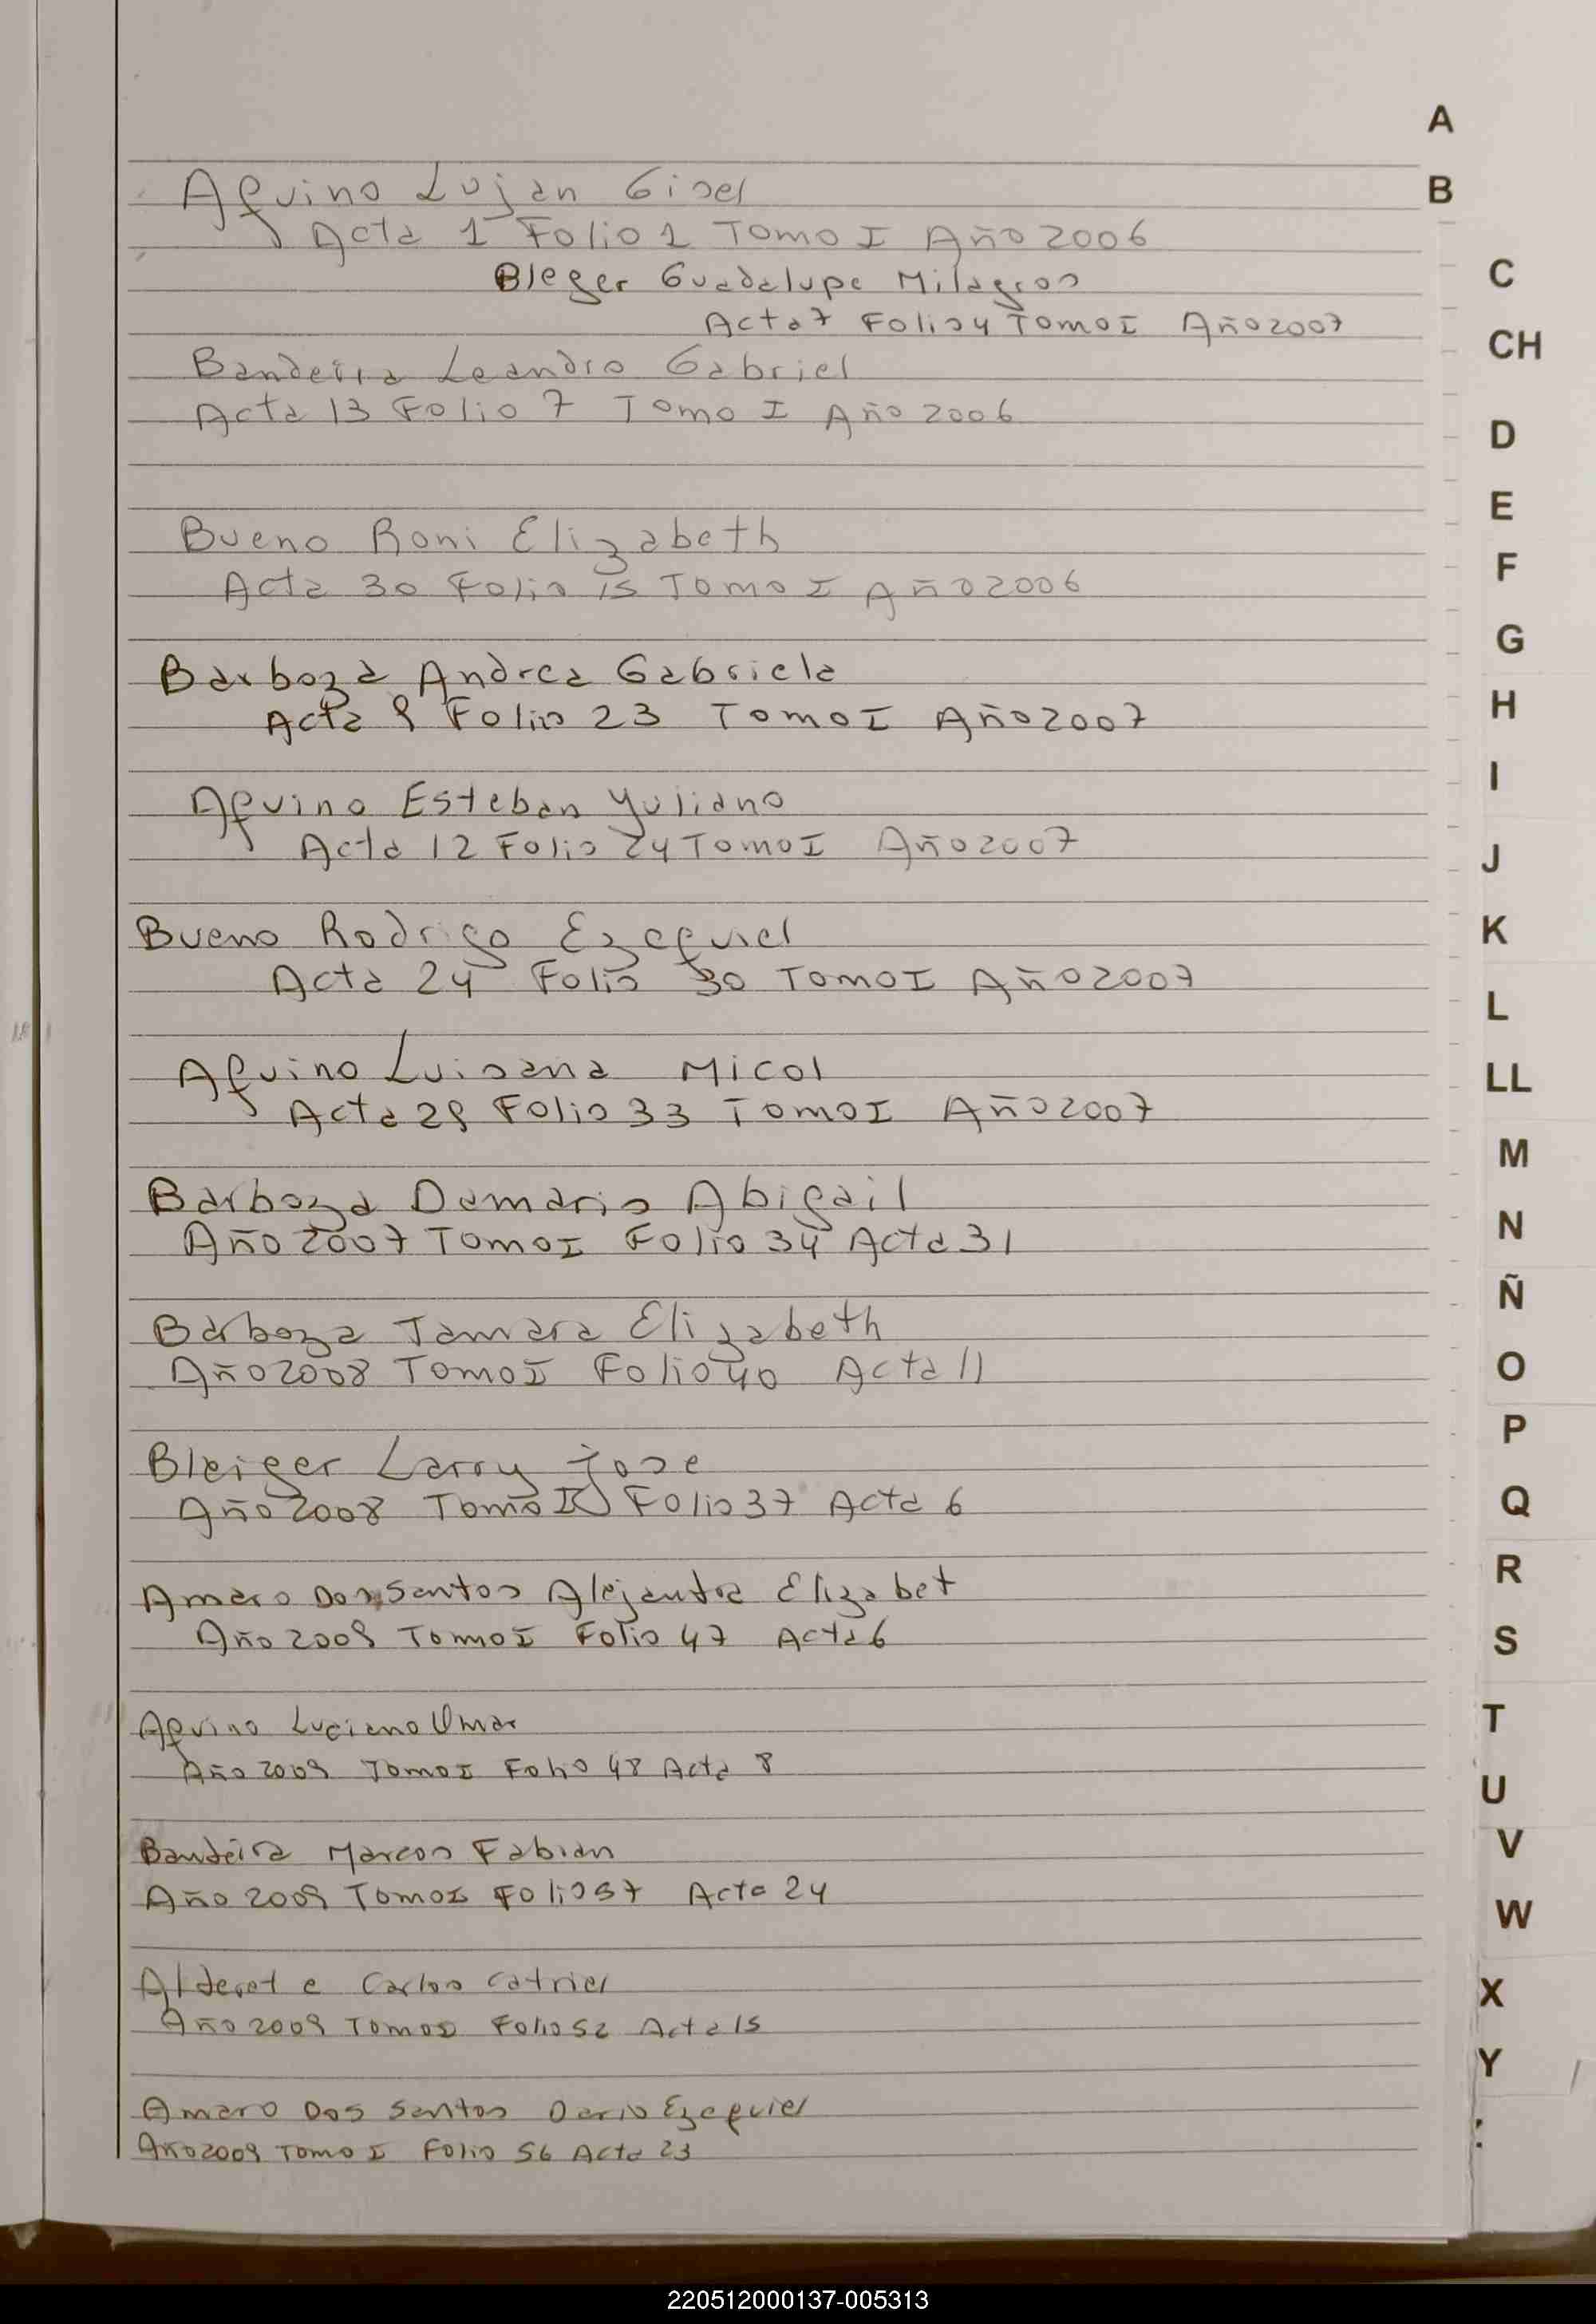 Aquino Lujan Gisel
Acta 1 Folio 1 Tomo I Año 2006
Bleger Guadalupe Milagros
Acta 7 Folio 4 Tomo I Año 2007
Bandeira Leandro Gabriel
Acta 13 Folio 7 Tomo I Año 2006
Bueno Roni Elizabeth
Acta 30 Folio 15 Tomo I Año 2006
Barboza Andrea Gabriela
Acta 9 Folio 23 Tomo I Año 2007
Aquino Esteban Yuliano
Acta 12 Folio 24 Tomo I Año 2007
Bueno Rodrigo Ezequiel
Acta 24 Folio 30 Tomo I Año 2007
Aquino Luisana Micol
Acta 29 Folio 33 Tomo I Año 2007
Barboza Damaris Abigail
Año 2007 Tomo I Folio 34 Acta 31
Barboza Tamara Elizabeth
Año 2008 Tomo I Folio 40 Acta 11
Bleiger Larry Jose
Año 2008 Tomo I Folio 37 Acta 6
Amaro Dos Santos Alejandra Elizabet
Año 2009 Tomo I Folio 47 Acta 6
Aquino Luciano Omar
Año 2009 Tomo I Folio 48 Acta 8
Bandeira Marcos Fabian
Año 2009 Tomo I Folio 57 Acta 24
Alderete Carlos Catriel
Año 2009 Tomo I Folio 52 Acta 15
Amaro Dos Santos Dario Ezequiel
Año 2009 Tomo I Folio 56 Acta 23
A
B
C
CH
D
E
F
G
H
I
J
K
L
LL
M
N
Ñ
O
P
Q
R
S
T
U
V
W
X
Y
220512000137-005313